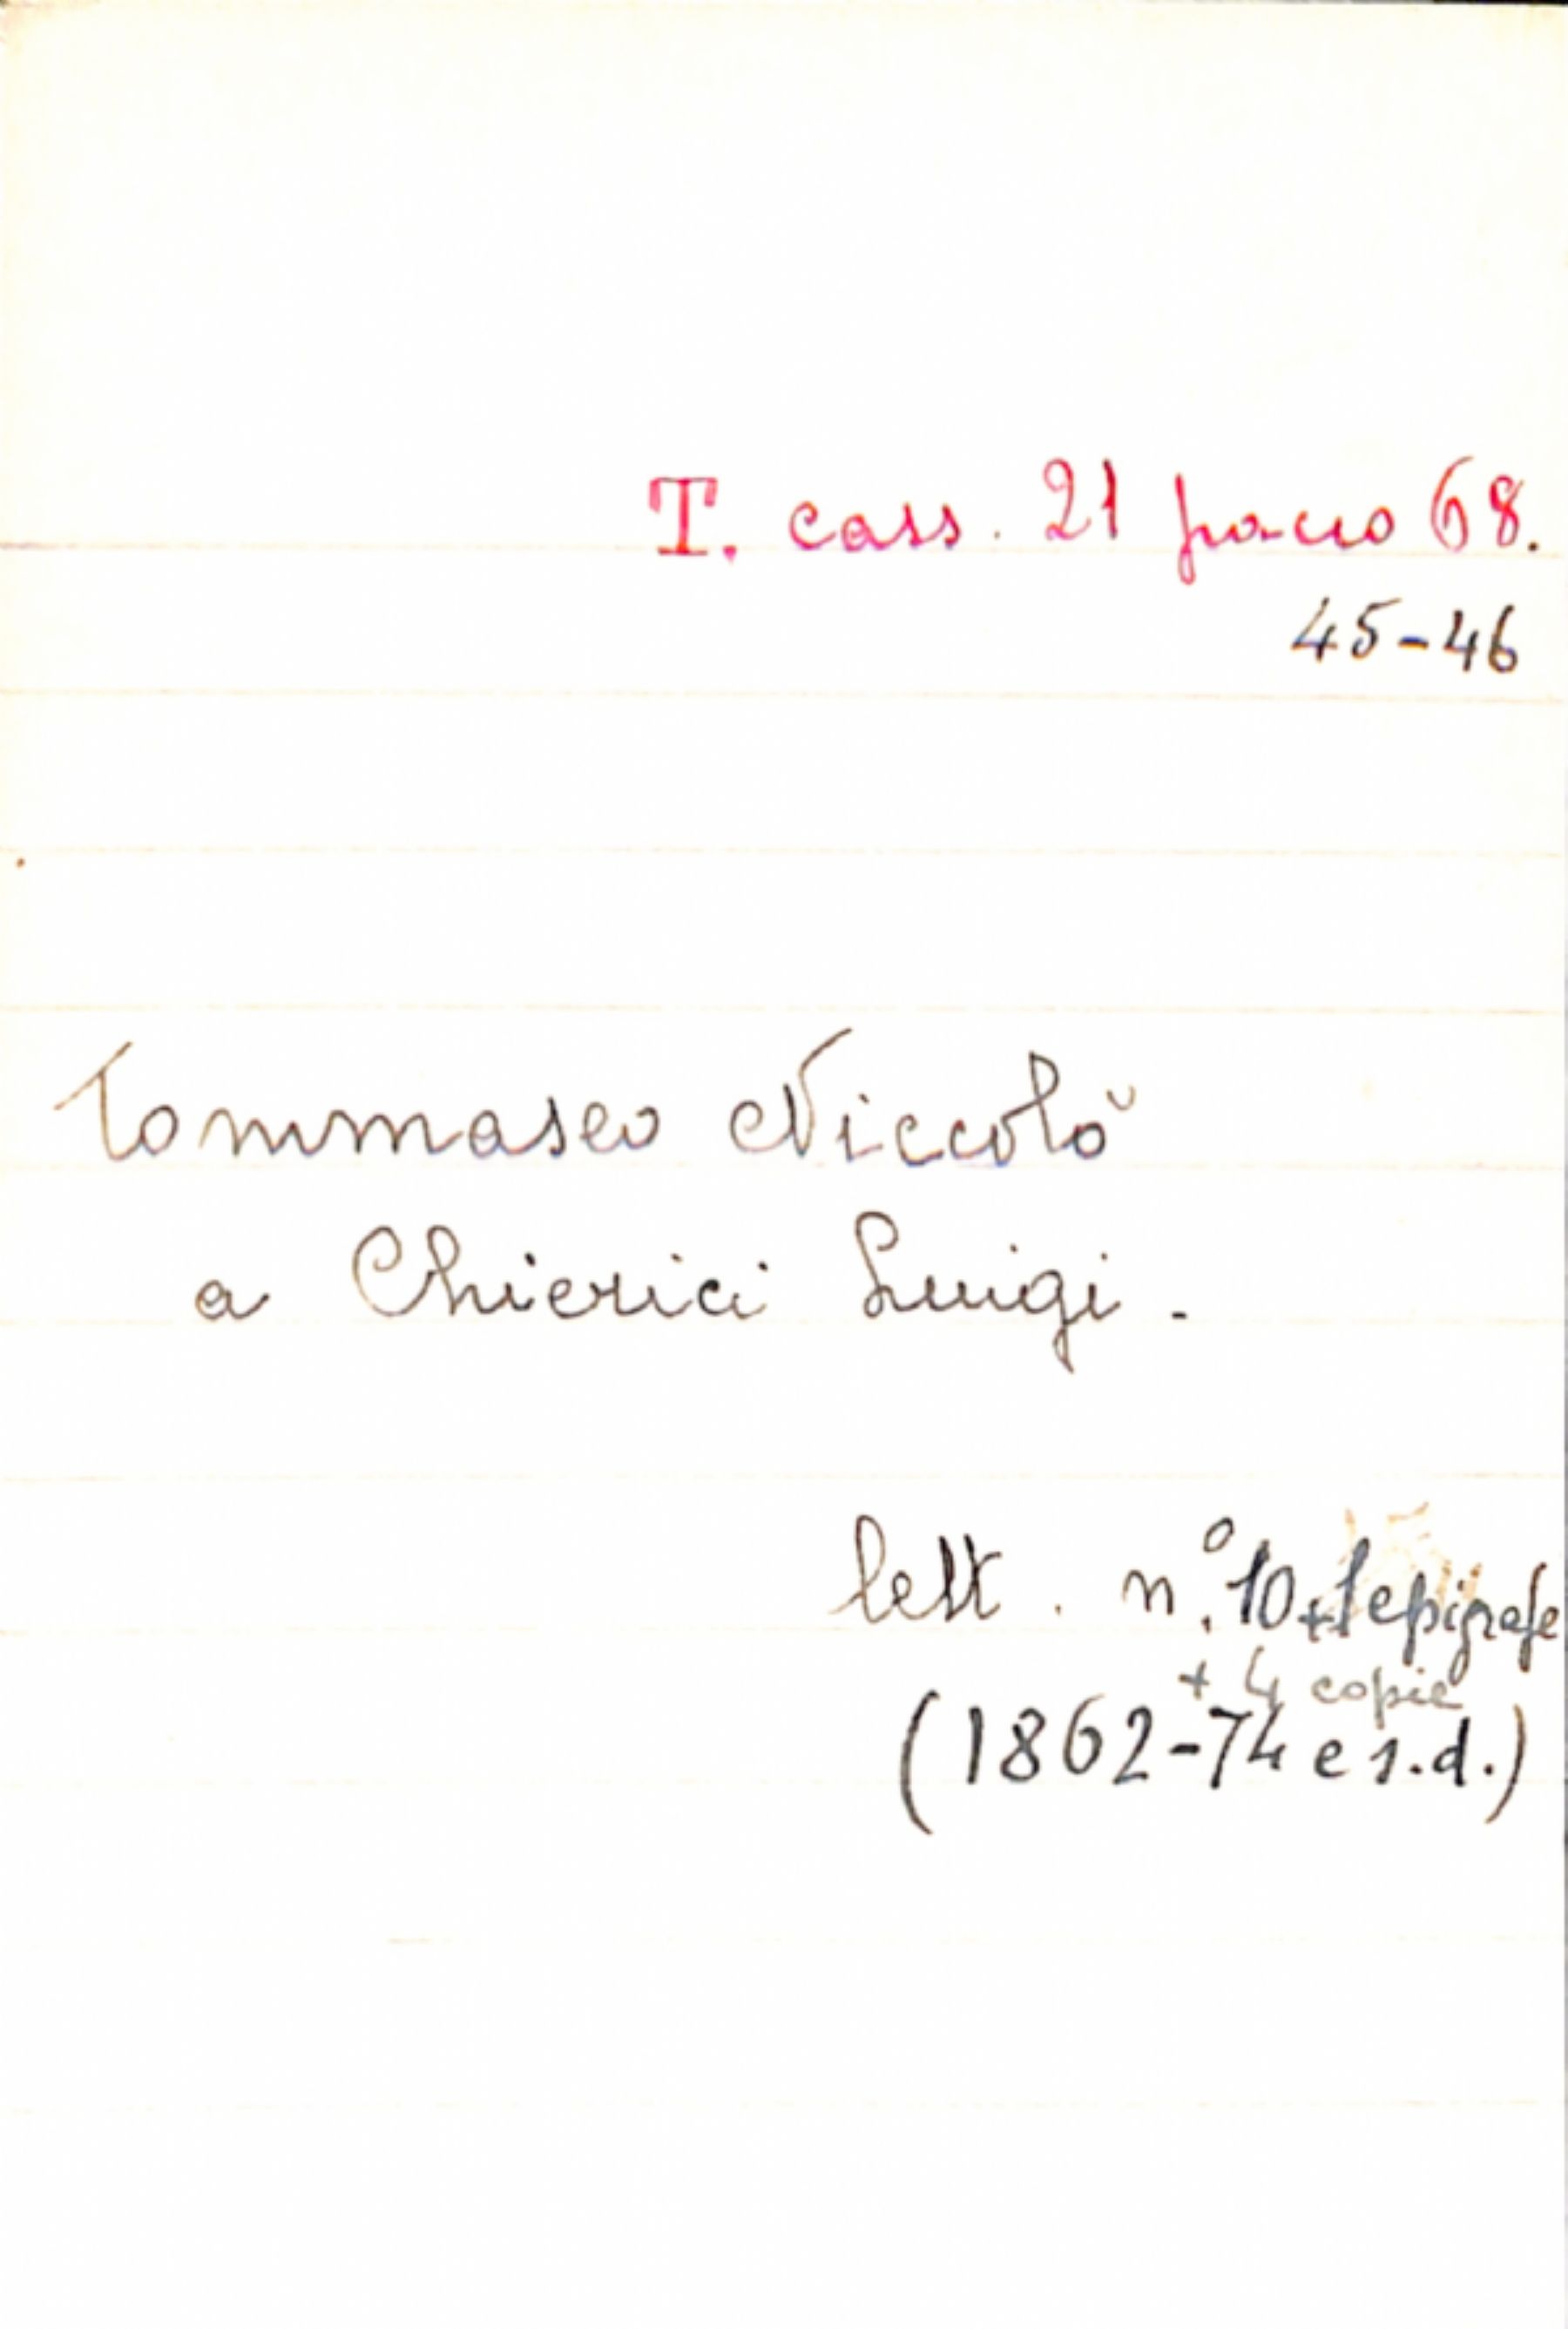 T. cass. 21 pacco 68.
45-46
Tommaseo Niccolò
a Chierici Luigi.
lett. n.° 10 + 1 epigrafe
+ 4 copie
(1862-74 e s.d.)